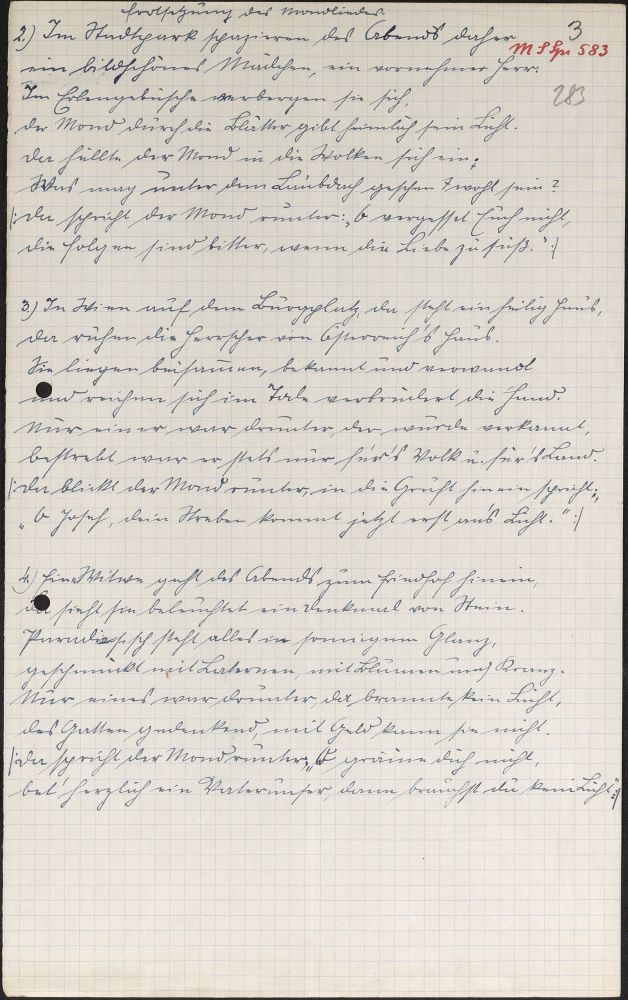 Fortsetzung des Mondliedes.
3
2.) Im Stadtpark spazieren des Abends daher
M S Gr 583
ein bildschönes Mädchen, ein vornehmer Herr.
283
Im Erlengebüsche verbergen sie sich,
der Mond durch die Blätter gibt heimlich sein Licht.
Da hüllte der Mond in die Wolken sich ein.
Was mag unter dem Laubdach geschen wohl sein?
|: Da spricht der Mond runter: „O vergesset Euch nicht,
die Folgen sind bitter, wenn die Liebe zu süß." :|
3.) In Wien auf dem Burgplatz, da steht ein heilig Haus,
da ruhen die Herrscher von Österreich's Haus.
Sie liegen beisam̄en, bekannt und verwandt
und reichen sich im Tode verbrüdert die Hand.
Nur einer war drunter, der wurde verkannt,
bestrebt war er stets nur für's Volk u. für's Land.
|: Da blickt der Mond runter, in die Gruft hinein spricht:
„O Josef, dein Streben kommt jetzt erst an's Licht." :|
4.) Eine Witwe geht des Abends zum Friedhof hinein,
da sieht sie beleuchtet ein Denkmal von Stein.
Paradisisch steht alles in sonnigem Glanz,
geschmückt mit Laternen, mit Blumen und Kranz.
Nur eines war drunter, da brannte kein Licht,
des Gatten gedenkend, mit Geld kann sie nicht.
|: Da spricht der Mond runter: „O gräme dich nicht,
bet' herzlich ein Vaterunser, dann brauchst du kein Licht" :|